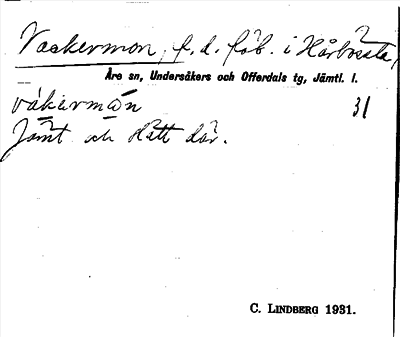 Vackermon, f.d. fäb. i Hårbörsta,
Åre sn, Undersåkers och Offerdals tg, Jämtl. l.
våkermȧn 31
Jämt och slätt där.
C. LINDBERG 1931.